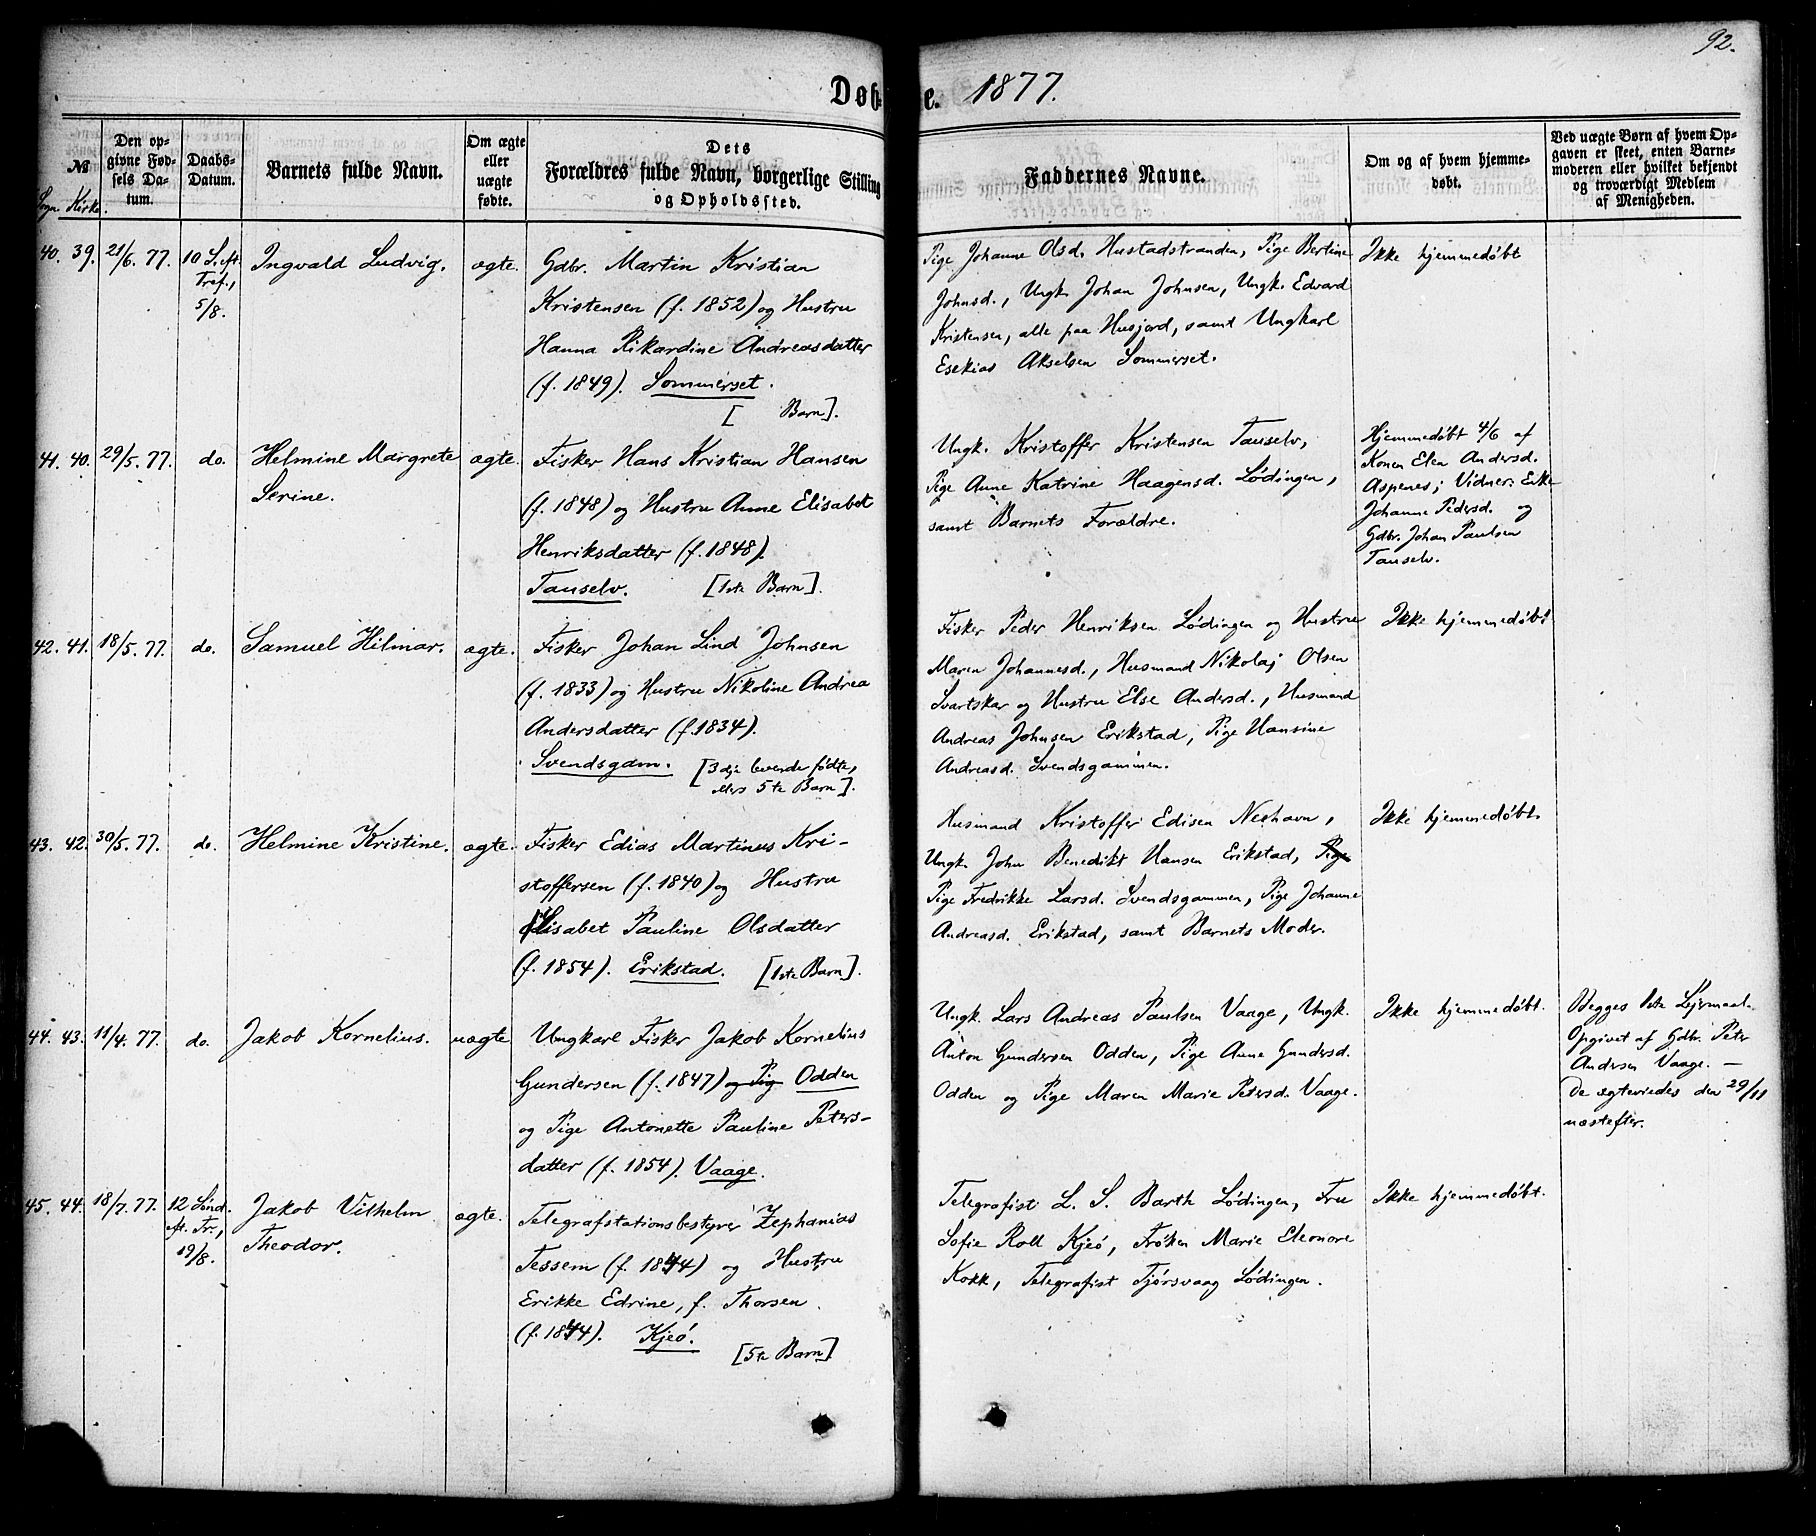 92.
Døbte. 1877.
№
Sogn Kirke
Den opgivne Fødsels Datum.
Daabs-Datum.
Barnets fulde Navn.
Om ægte eller uægte fødte.
Dets Forældres fulde Navn, borgerlige Stilling og Opholdssted.
Faddernes Navne.
Om og af hvem hjemmedøbt.
Ved uægte Børn af hvem Opgaven er skeet, enten Barnemoderen eller hvilket bekjendt og troværdigt Medlem af Menigheden.
40. 39. 21/6. 77. 10 S. eft.
Tref.,
5/8.
Ingvald Ludvig.
ægte.
Gdbr. Martin Kristian
Kristensen (f. 1852) og Hustru
Hanna Rikardine Andreasdatter
(f. 1849). Sommerset.
[ Barn].
Pige Johanne Olsd. Hustadstranden, Pige Bertine
Johnsd., Ungk. Johan Johnsen, Ungk. Edvard
Kristensen, alle paa Husjord, samt Ungkarl
Esekias Akselsen Sommerset.
Ikke hjemmedøbt
41. 40. 29/5. 77. do.
Helmine Margrete
Serine.
ægte.
Fisker Hans Kristian Hansen
(f. 1848) og Hustru Anne Elisabet
Henriksdatter (f. 1848).
Tauselv. [1ste Barn].
Ungk. Kristoffer Kristensen Tauselv,
Pige Anne Katrine Haagensd. Lødingen,
samt Barnets Forældre.
Hjemmedøbt 4/6 af
Konen Elen Andersd.
Aspenes; Vidner: Enke
Johanne Pedersd. og
Gdbr. Johan Paulsen
Tauselv.
42. 41. 18/5. 77. do.
Samuel Hilmar.
ægte.
Fisker Johan Lind Johnsen
(f. 1833) og Hustru Nikoline Andrea
Andersdatter (f. 1834).
Svendsgam. [3dje levende fødte,
ellers 5te Barn].
Fisker Peder Henriksen Lødingen og Hustru
Maren Johannesd., Husmand Nikolaj Olsen
Svartskar og Hustru Else Andersd., Husmand
Andreas Johnsen Erikstad, Pige Hansine
Andreasd. Svendsgammen.
Ikke hjemmedøbt
43. 42. 30/5. 77. do.
Helmine Kristine.
ægte.
Fisker Edias Martinus Kri-
stoffersen (f. 1840) og Hustru
Elisabet Pauline Olsdatter
(f. 1854). Erikstad. [1ste Barn].
Husmand Kristoffer Edisen Neshavn,
Ungk. John Benedikt Hansen Erikstad, Pige
Pige Fredrikke Larsd. Svendsgammen, Pige Johanne
Andreasd. Erikstad, samt Barnets Moder.
Ikke hjemmedøbt.
44. 43. 11/4. 77. do.
Jakob Kornelius.
uægte
Ungkarl Fisker Jakob Kornelius
Gundersen (f. 1847) og Pig Odden
og Pige Antonette Pauline Peters-
datter (f. 1854). Vaage.
Ungk. Lars Andreas Paulsen Vaage, Ungk.
Anton Gundersen Odden, Pige Anne Gundersd.
Odden og Pige Maren Marie Petersd. Vaage.
Ikke hjemmedøbt.
Begges 1ste Lejermaal.
Opgivet af Gdbr. Peter
Andersen Vaage. —
De ægteviedes den 29/11
næstefter.
45. 44. 18/7. 77. 12 Sønd.
eft. Tr.,
19/8.
Jakob Vilhelm
Theodor.
ægte.
Telegrafstationsbestyrer Zephanias
Tessem (f. 1844) og Hustru
Erikke Edrine, f. Thorsen
(f. 1844). Kjeø.
[5te Barn]
Telegrafist L. S. Barth Lødingen, Fru
Sofie Roll Kjeø, Frøken Marie Eleonore
Kokk, Telegrafist Tjørsvaag Lødingen.
Ikke hjemmedøbt.